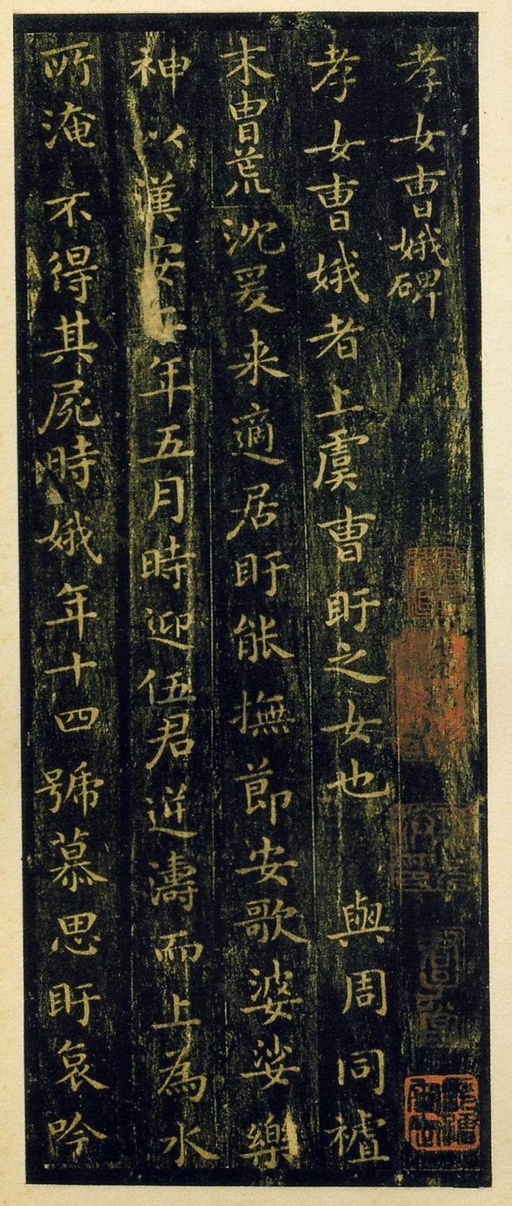 孝女曹娥碑
孝女曹娥者上虞曹盱之女也 與周同祖
末冑荒沈爰来適居盱能撫節安歌婆娑樂
神以漢安二年五月時迎伍君逆濤而上為水
所淹不得其屍時娥年十四號慕思盱哀吟